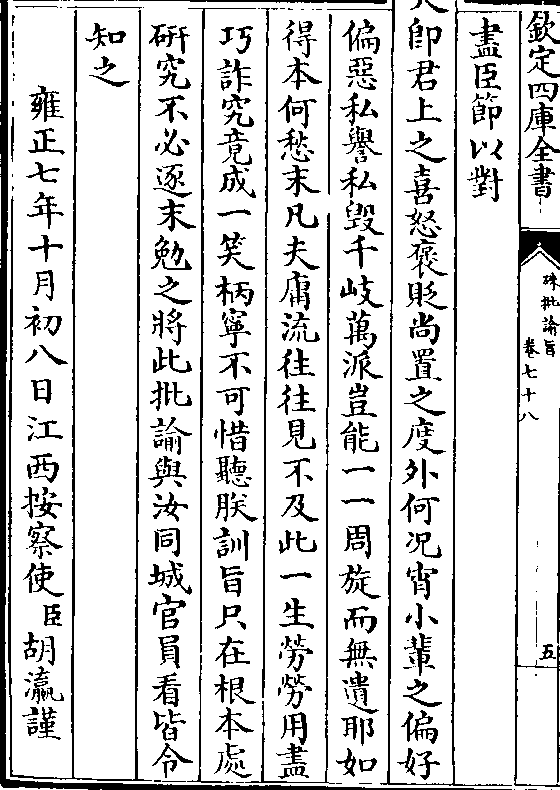 欽定四庫全書
硃批諭旨
卷七十八
五
盡臣節以對
即君上之喜怒褒貶尚置之度外何况宵小輩之偏好
偏惡私譽私毀千岐萬派豈能一一周旋而無遺耶如
得本何愁末凡夫庸流往往見不及此一生勞勞用盡
巧詐究竟成一笑柄寧不可惜聽朕訓旨只在根本處
研究不必逐末勉之將此批諭與汝同城官員看皆令
知之
雍正七年十月初八日江西按察使臣胡瀛謹